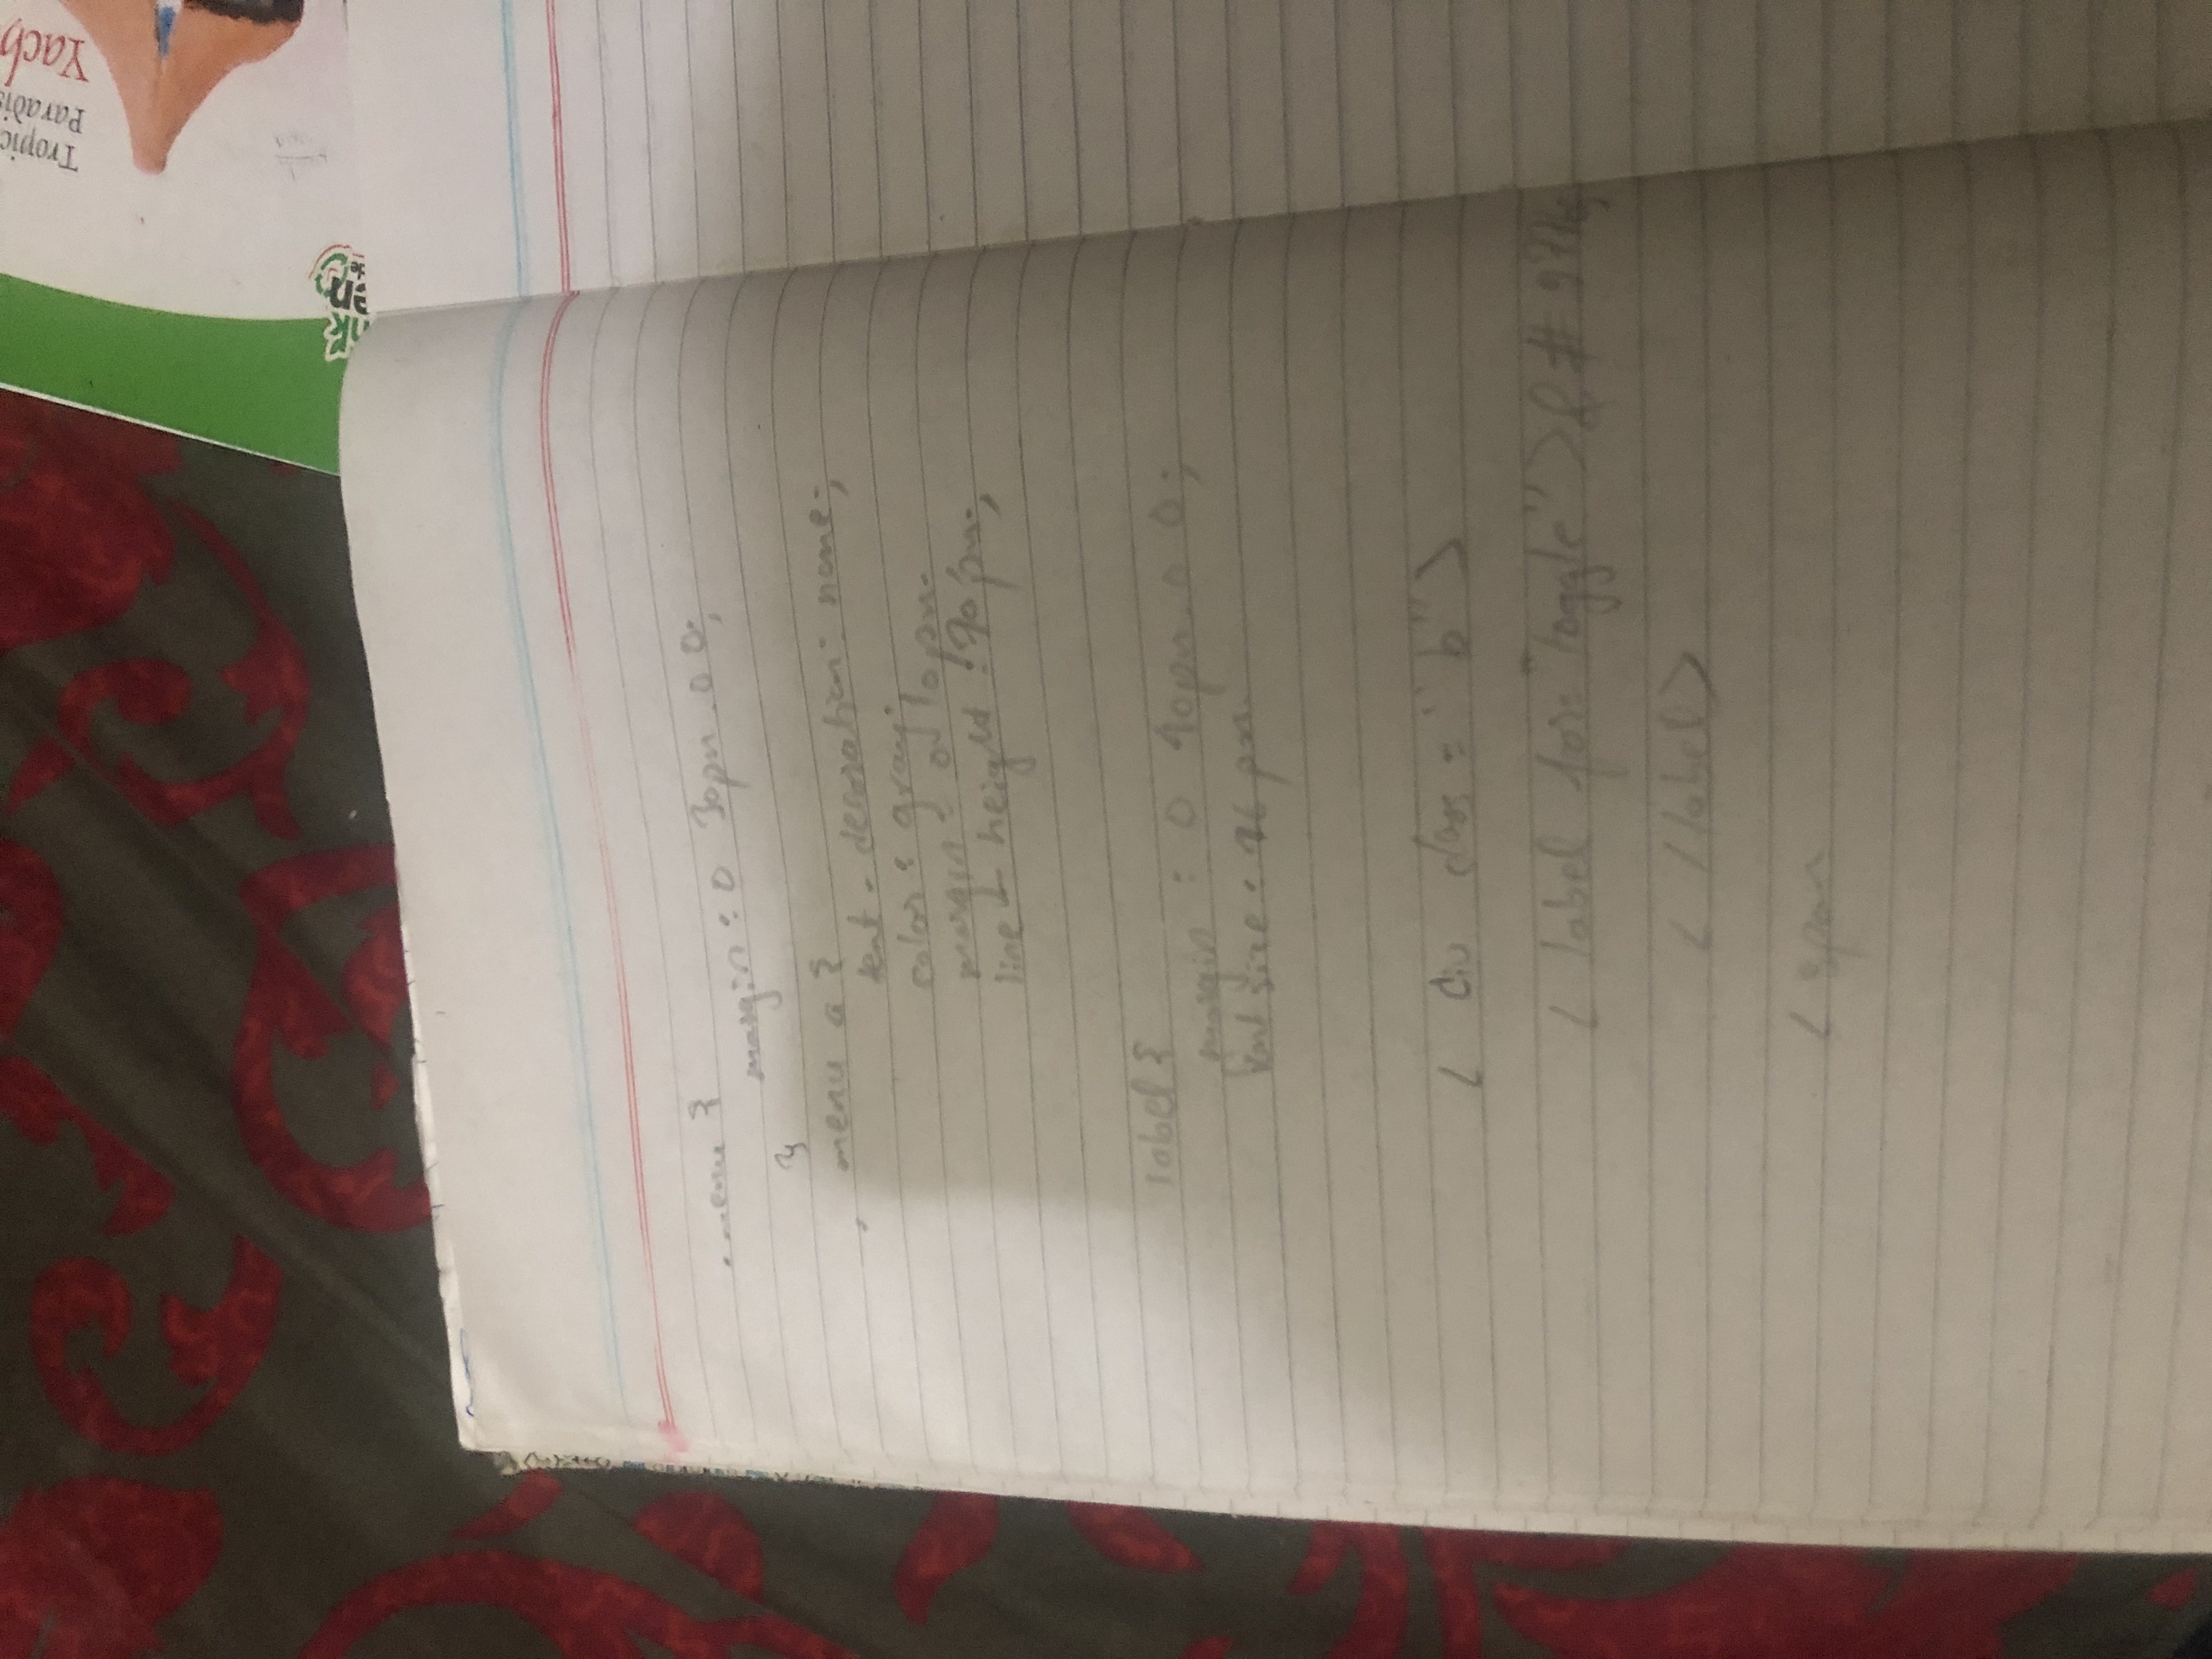 Tropic
Paradi
Yach
nk
en
.menu {
margin : 0 30px 0 0;
}
. menu a {
text - decoration: none;
color : gray;
margin : 0 10px.
line - height : 70px;
label {
margin : 0 40px 0 0;
font size : 26 px.
< div class = "b" >
< label for= "toggle" >&# 977
< /label>
< span